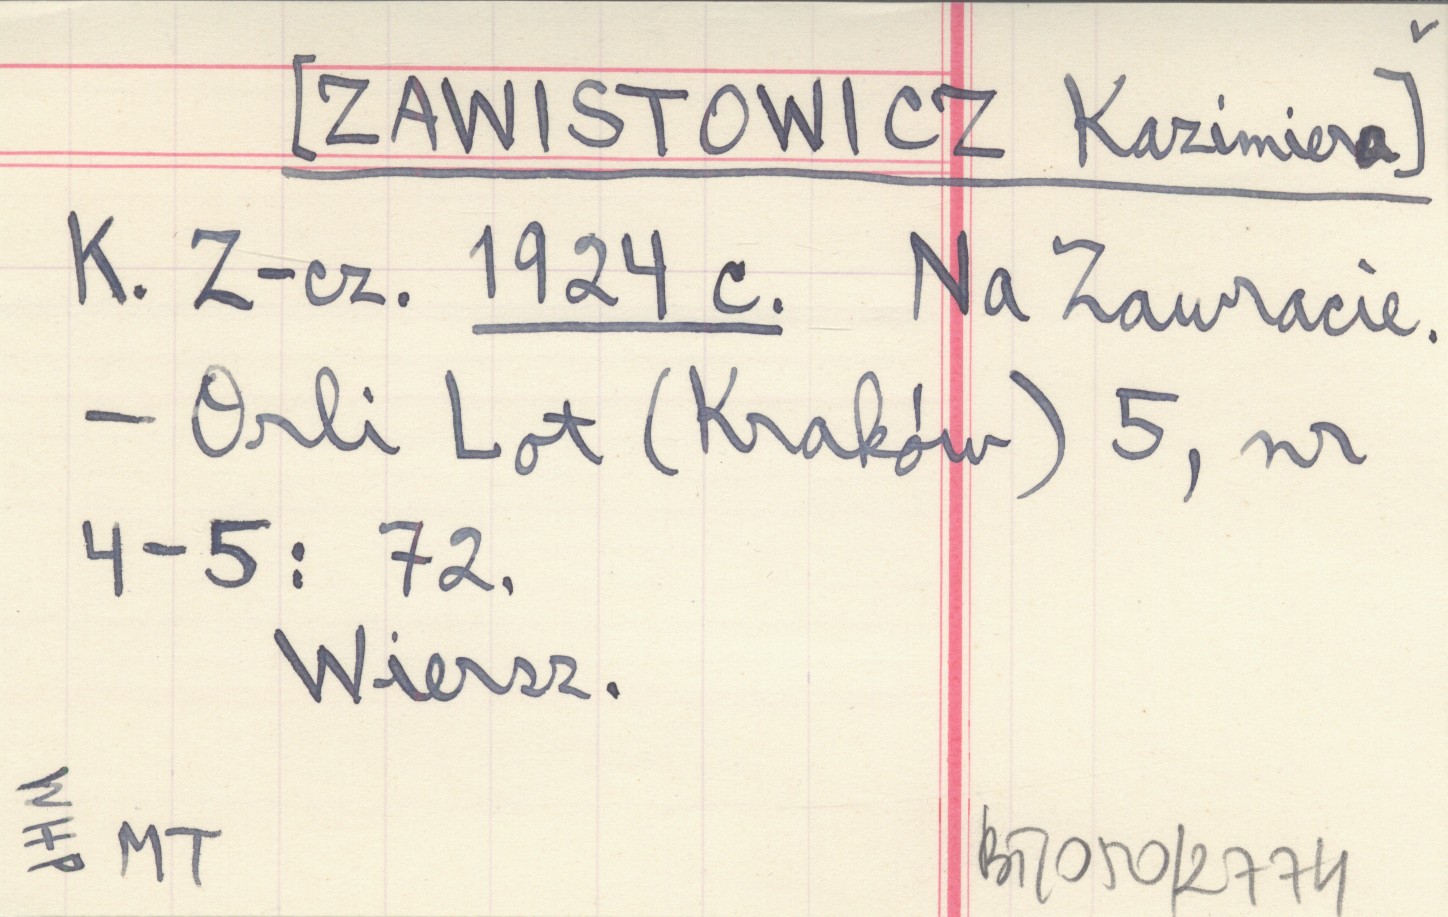 [ZAWISTOWICZ Kazimiera]
K. Z-cz. 1924 c. Na Zawracie.
- Orli Lot (Kraków) 5, nr
4-5: 72.
Wiersz.
WHP
MT